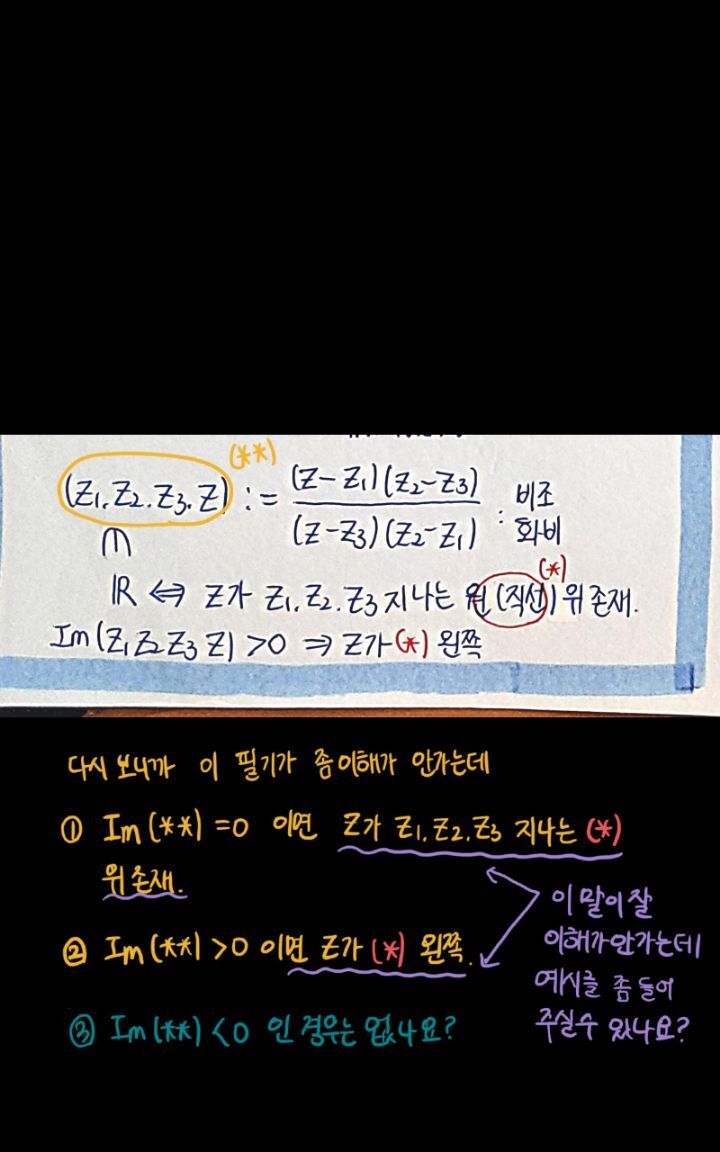 (**)
(Z₁.Z₂.Z₃.Z) := (Z-Z₁)(Z₂-Z₃) / (Z-Z₃)(Z₂-Z₁) : 비조화비
∩
ℝ ⇔ Z가 Z₁.Z₂.Z₃ 지나는 원(직선)(*) 위 존재.
Im(Z₁Z₂Z₃Z) >0 ⇒ Z가 (*) 왼쪽
다시 보니까 이 필기가 좀 이해가 안가는데
① Im(**) =0 이면 Z가 Z₁.Z₂.Z₃ 지나는 (*)
위 존재.
② Im(**) >0 이면 Z가 (*) 왼쪽.
이 말이 잘
이해가 안가는데
예시를 좀 들어
주실수 있나요?
③ Im(**) <0 인 경우는 없나요?